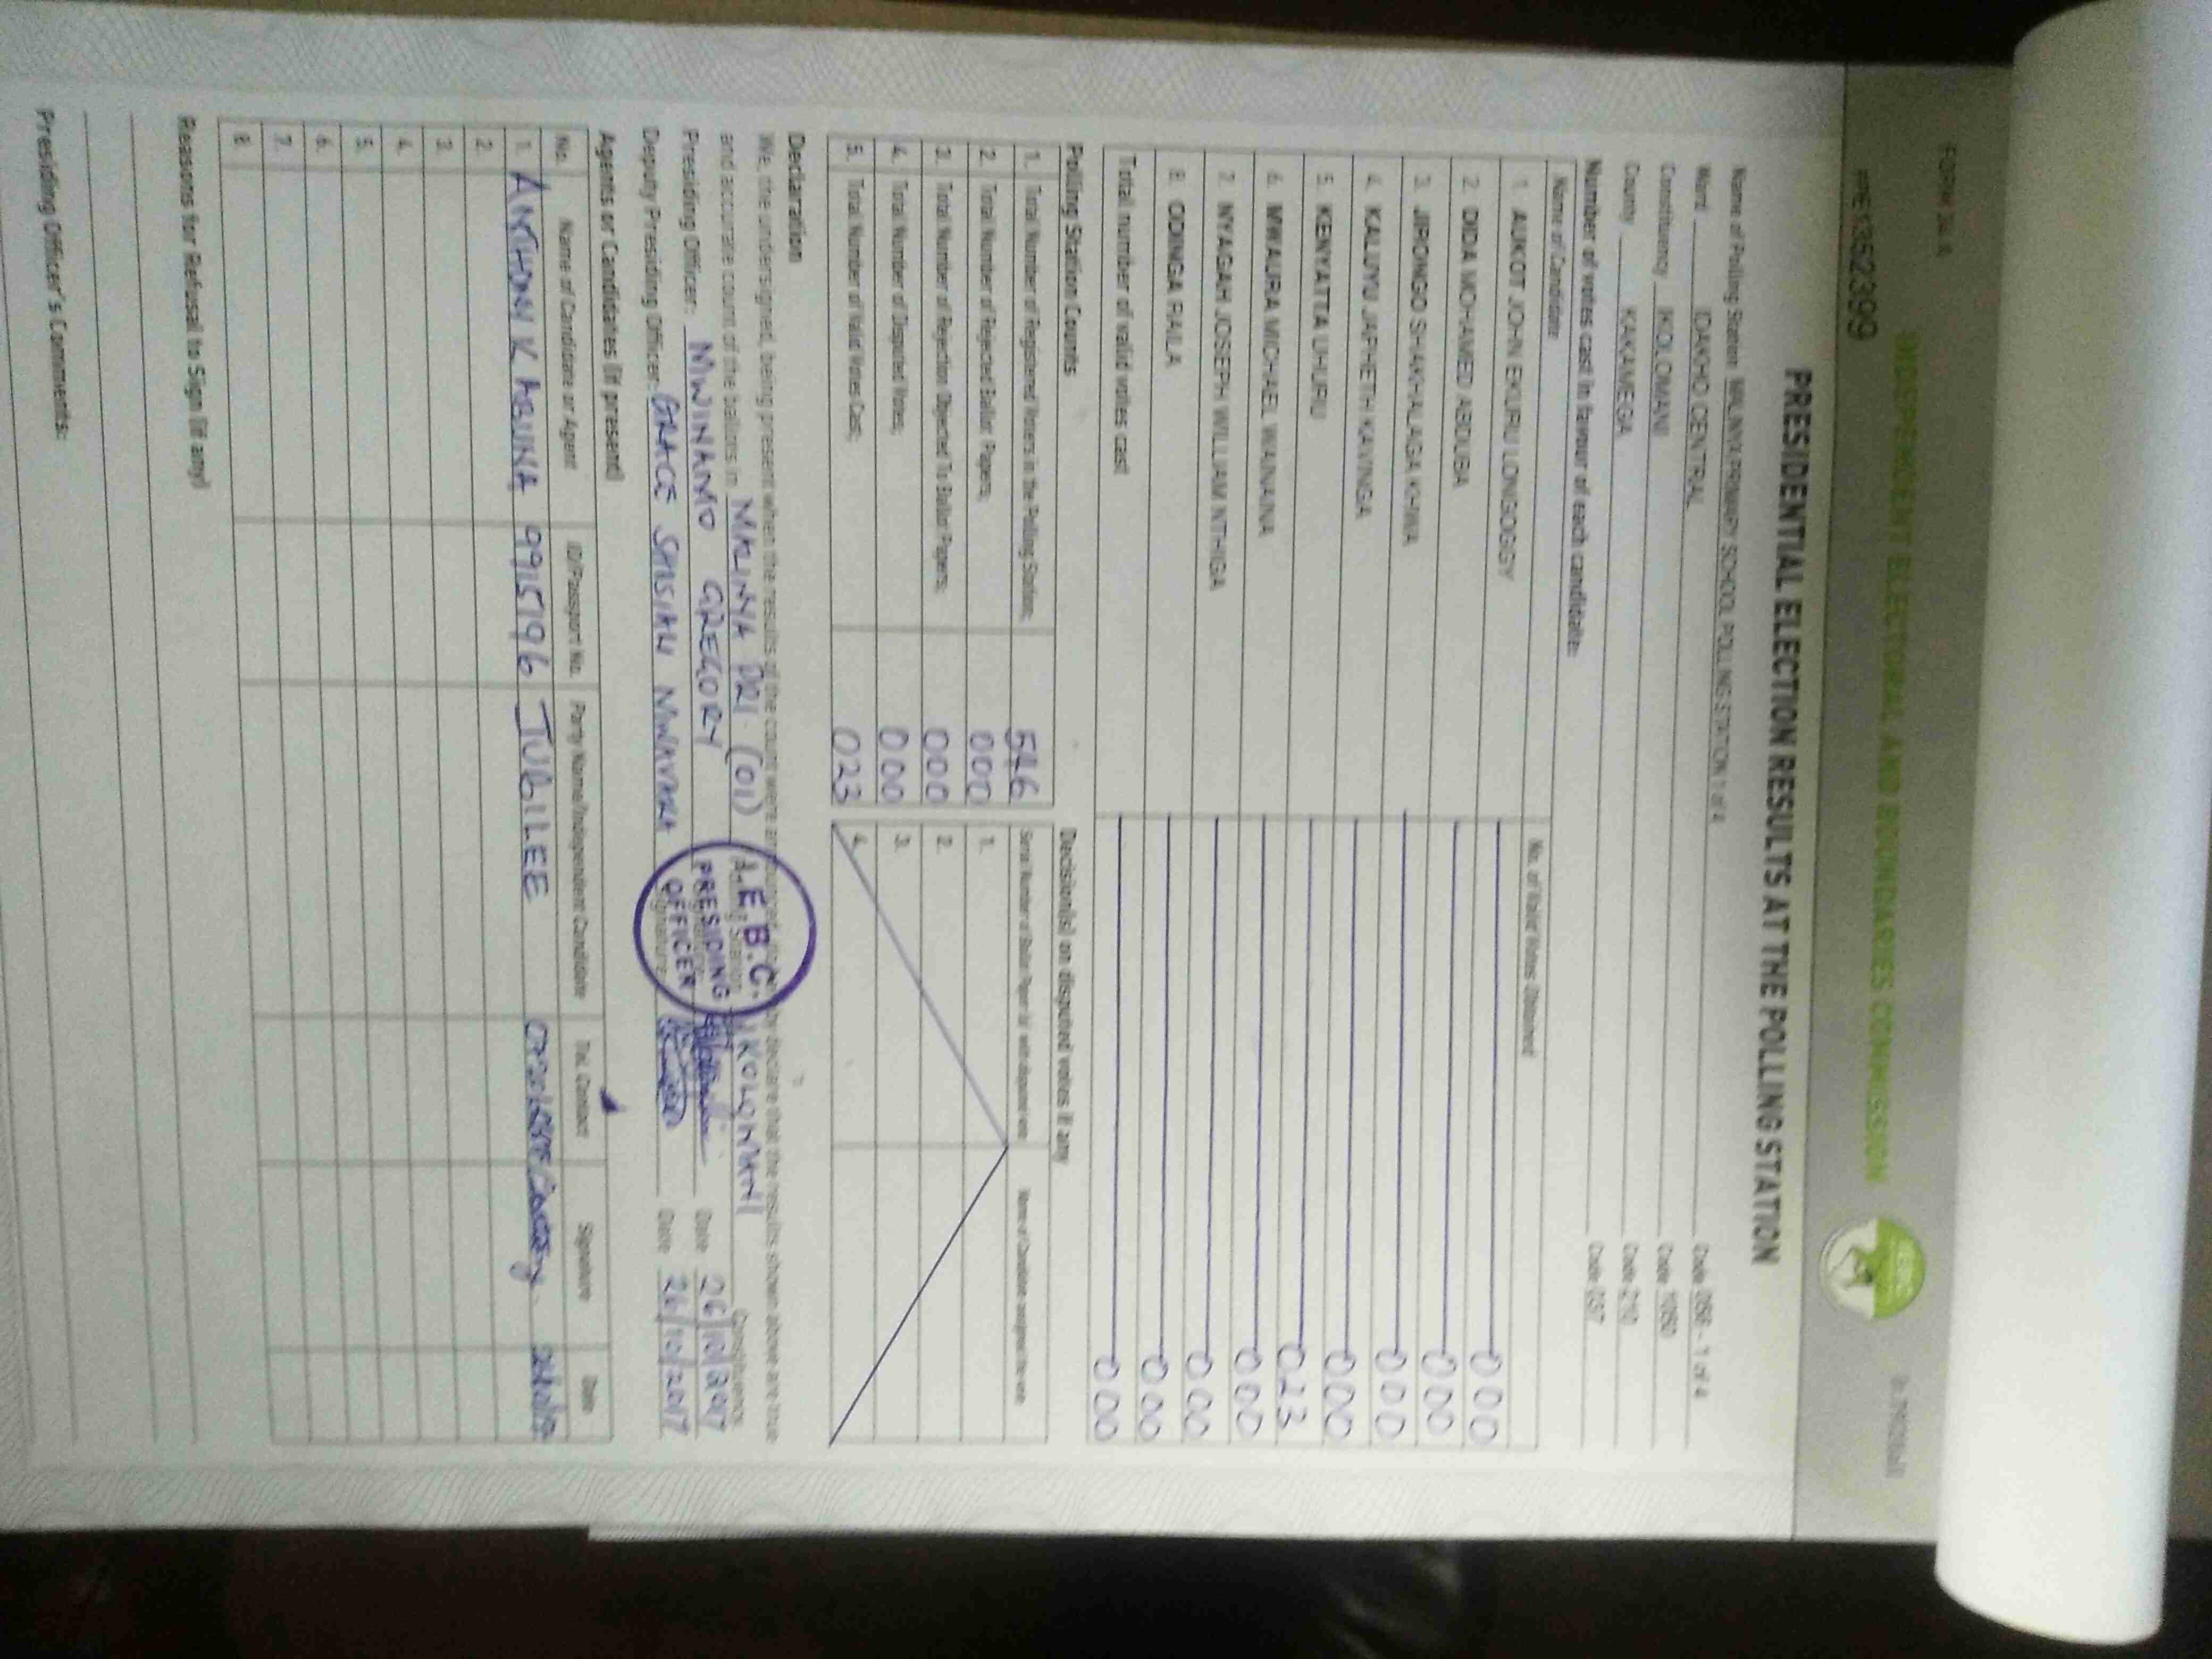 FORM 34 A
INDEPENDENT ELECTORAL AND BOUNDARIES COMMISSION
PRESIDENTIAL ELECTION RESULTS AT THE POLLING STATION
Name of Polling Station MALINYA PRIMARY SCHOOL POLLING STATION 1 of 4 Code 058 - 1 of 4
Ward IDAKHO CENTRAL Code 1050
Constituency IKOLOMANI Code 210
County KAKAMEGA Code 037
Number of votes cast in favour of each candidate:
Name of Candidate No. of Valid Votes Obtained
1. AUKOT JOHN EKURU LONGOGGY 000
2. DIDA MOHAMED ABDUBA 000
3. JIRONGO SHAKHALAGA KHWA 000
4. KALUYU JAPHETH KAVINGA 000
5. KENYATTA UHURU 023
6. MWAURA MICHAEL WAINAINA 000
7. NYAGAH JOSEPH WILLIAM NTHIGA 000
8. ODINGA RAILA 000
Total number of valid votes cast 000
Polling Station Counts Decision(s) on disputed votes if any
1. Total Number of Registered Voters in the Polling Station; 546
2. Total Number of Rejected Ballot Papers; 000
3. Total Number of Rejection Objected To Ballot Papers; 000
4. Total Number of Disputed Votes; 000
5. Total Number of Valid Votes Cast; 023
1.
2.
3.
4.
Declaration
We, the undersigned, being present when the results of the count were declare that the results shown above are true
and accurate count of the ballots in MALINYA PRI (01) IKOLOMANI Constituency
Presiding Officer: MWINAMO GREGORY Date 26/10/2017
Deputy Presiding Officer: GRACE Date 26/10/2017
I.E.B.C.
PRESIDING
OFFICER
Agents or Candidates (if present)
No. Name of Candidate or Agent ID/Passport No. Party Name/Independent Candidate Tel. Contact Signature Date
1. K ABUNA JUBILEE
2.
3.
4.
5.
6.
7.
8.
Reasons for Refusal to Sign (if any)
Presiding Officer's Comments: